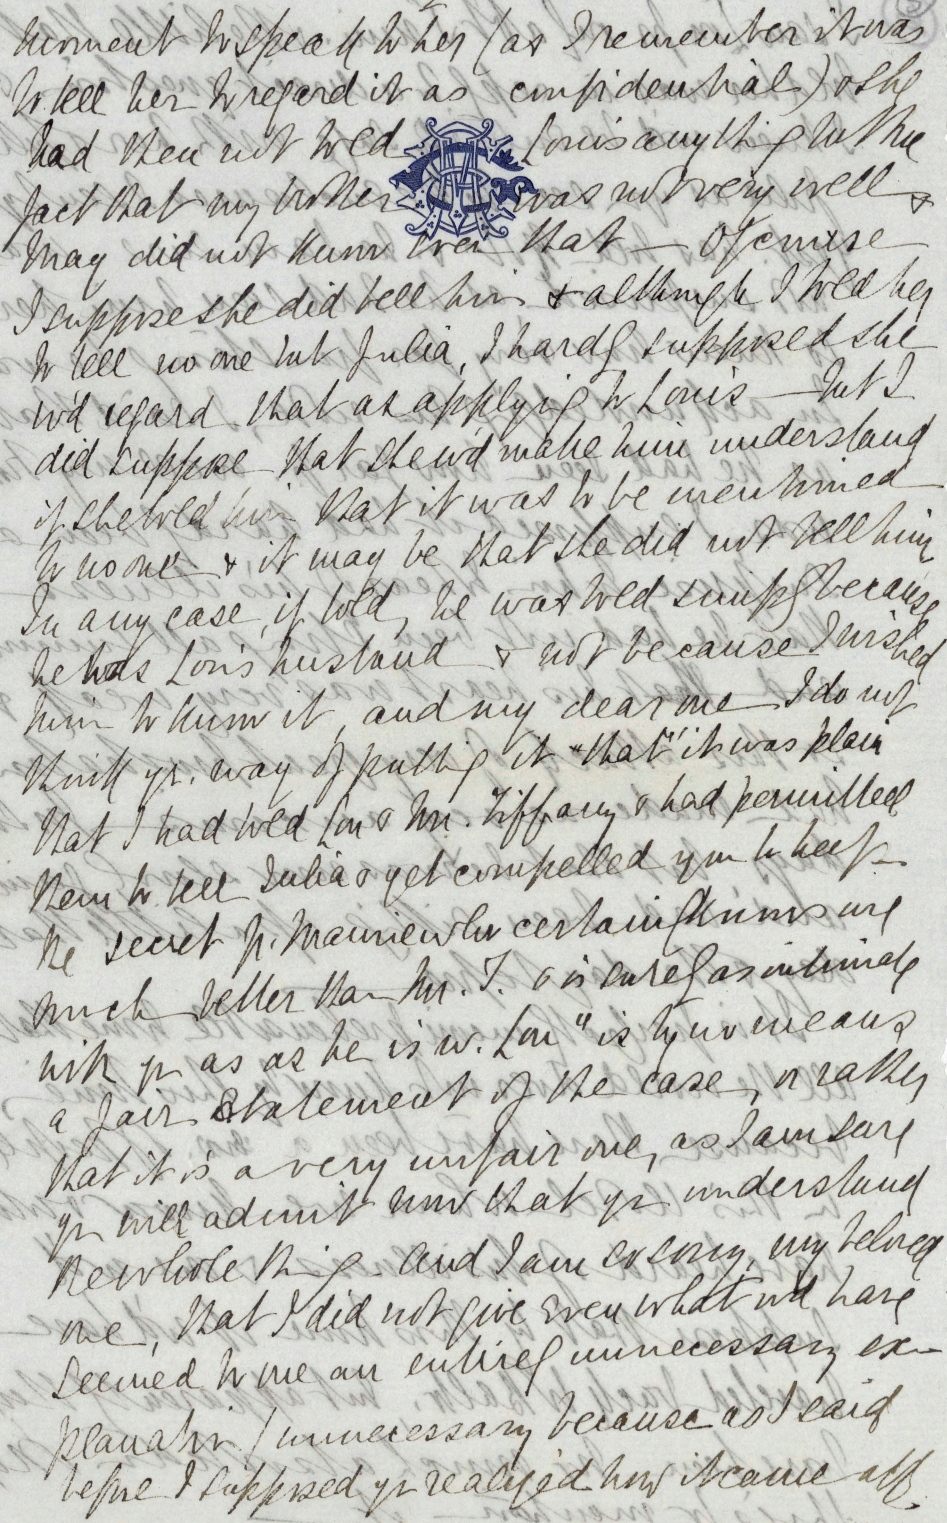 moment to speak to her (as I remember it was
to tell her to regard it as confidential) & she
had then not told Louis anything but the
fact that my brother was not very well &
May did not know even that — Of course
I suppose she did tell him & although I told her
to tell no one but Julia, I hardly supposed she
wd regard that as applying to Louis — but I
did suppose that she wd make him understand
if she told him that it was to be mentioned
to no one & it may be that she did not tell him
In any case, if told, he was told simply because
he was Lou's husband & not because I wished
him to know it, and my dear one I do not
think yr. way of putting it "that" it was plain
that I had told Lou & Mr. Tiffany & had permitted
them to tell Julia & yet compelled you to keep
the secret fr. Maurice who certainly knows me
much better than Mr. T. & is surely as intimate
with yr as as he is w. Lou" is by no means
a fair statement of the case, or rather
that it is a very unfair one, as I am sure
yr will admit now that yr understand
the whole thing. And I am so sorry, my beloved
one, that I did not give even what wd have
seemed to me an entirely unnecessary ex-
planation (unnecessary because as I said
before I supposed yr realized how it came abt.